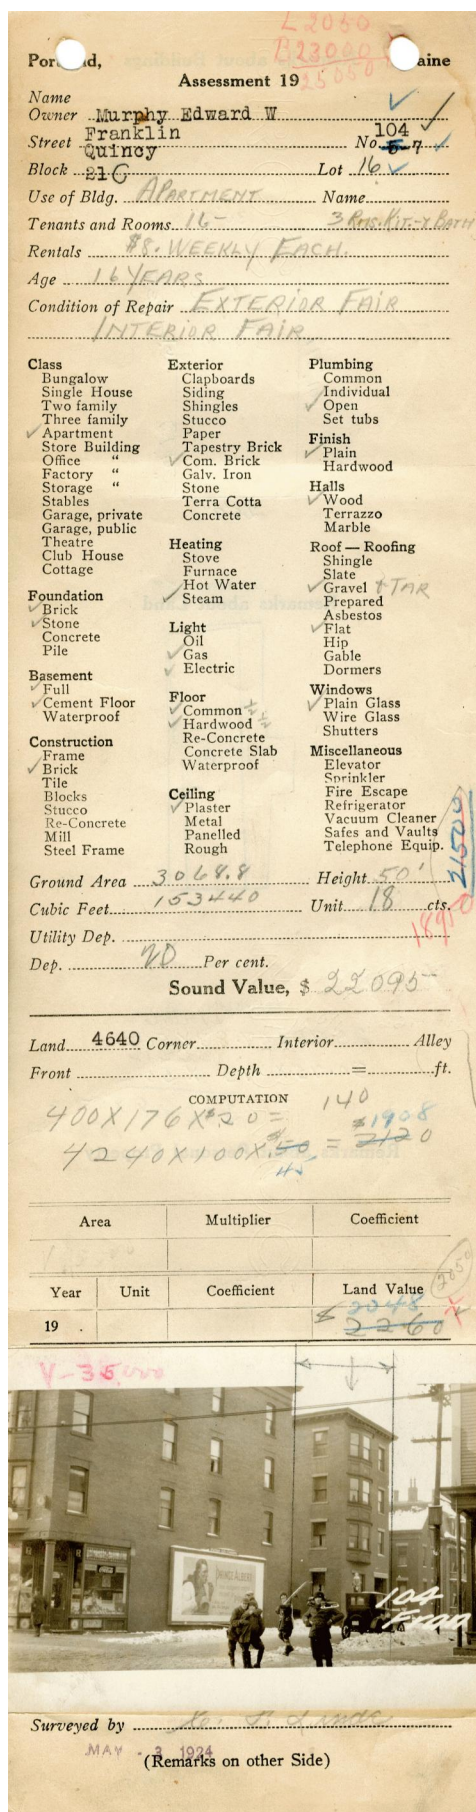 L 2050
B 23000
25050
Portland, Maine
Assessment 19
Name
Owner Murphy Edward W
Franklin 104
Street Quincy No. 5-7
Block 21 C Lot 16
Use of Bldg. APARTMENT Name
Tenants and Rooms 16- 3 RMS. KIT. & BATH
Rentals $8. WEEKLY EACH.
Age 16 YEARS
Condition of Repair EXTERIOR FAIR
INTERIOR FAIR
Class
Bungalow
Single House
Two family
Three family
✓ Apartment
Store Building
Office "
Factory "
Storage "
Stables
Garage, private
Garage, public
Theatre
Club House
Cottage
Foundation
✓ Brick
✓ Stone
Concrete
Pile
Basement
✓ Full
✓ Cement Floor
Waterproof
Construction
Frame
✓ Brick
Tile
Blocks
Stucco
Re-Concrete
Mill
Steel Frame
Exterior
Clapboards
Siding
Shingles
Stucco
Paper
Tapestry Brick
✓ Com. Brick
Galv. Iron
Stone
Terra Cotta
Concrete
Heating
Stove
Furnace
Hot Water
✓ Steam
Light
Oil
✓ Gas
✓ Electric
Floor
✓ Common ½
✓ Hardwood ½
Re-Concrete
Concrete Slab
Waterproof
Ceiling
✓ Plaster
Metal
Panelled
Rough
Plumbing
Common
Individual
✓ Open
Set tubs
Finish
✓ Plain
Hardwood
Halls
✓ Wood
Terrazzo
Marble
Roof — Roofing
Shingle
Slate
✓ Gravel & TAR
Prepared
Asbestos
✓ Flat
Hip
Gable
Dormers
Windows
✓ Plain Glass
Wire Glass
Shutters
Miscellaneous
Elevator
Sprinkler
Fire Escape
Refrigerator
Vacuum Cleaner
Safes and Vaults
Telephone Equip.
21500
Ground Area 3068.8 Height 50'
Cubic Feet 153440 Unit 18 cts.
Utility Dep.
Dep. 20 Per cent.
Sound Value, $ 22095
Land 4640 Corner Interior Alley
Front Depth = ft.
COMPUTATION
400 X 176 X $ 20 = 140
4240 X 100 X $.50 = $ 2120 1908
45
Area Multiplier Coefficient
2050
Year Unit Coefficient Land Value
19 $ 2260 2048
V-35,000
PRINCE ALBERT
104
Fran
Surveyed by
MAY - 3 1924
(Remarks on other Side)